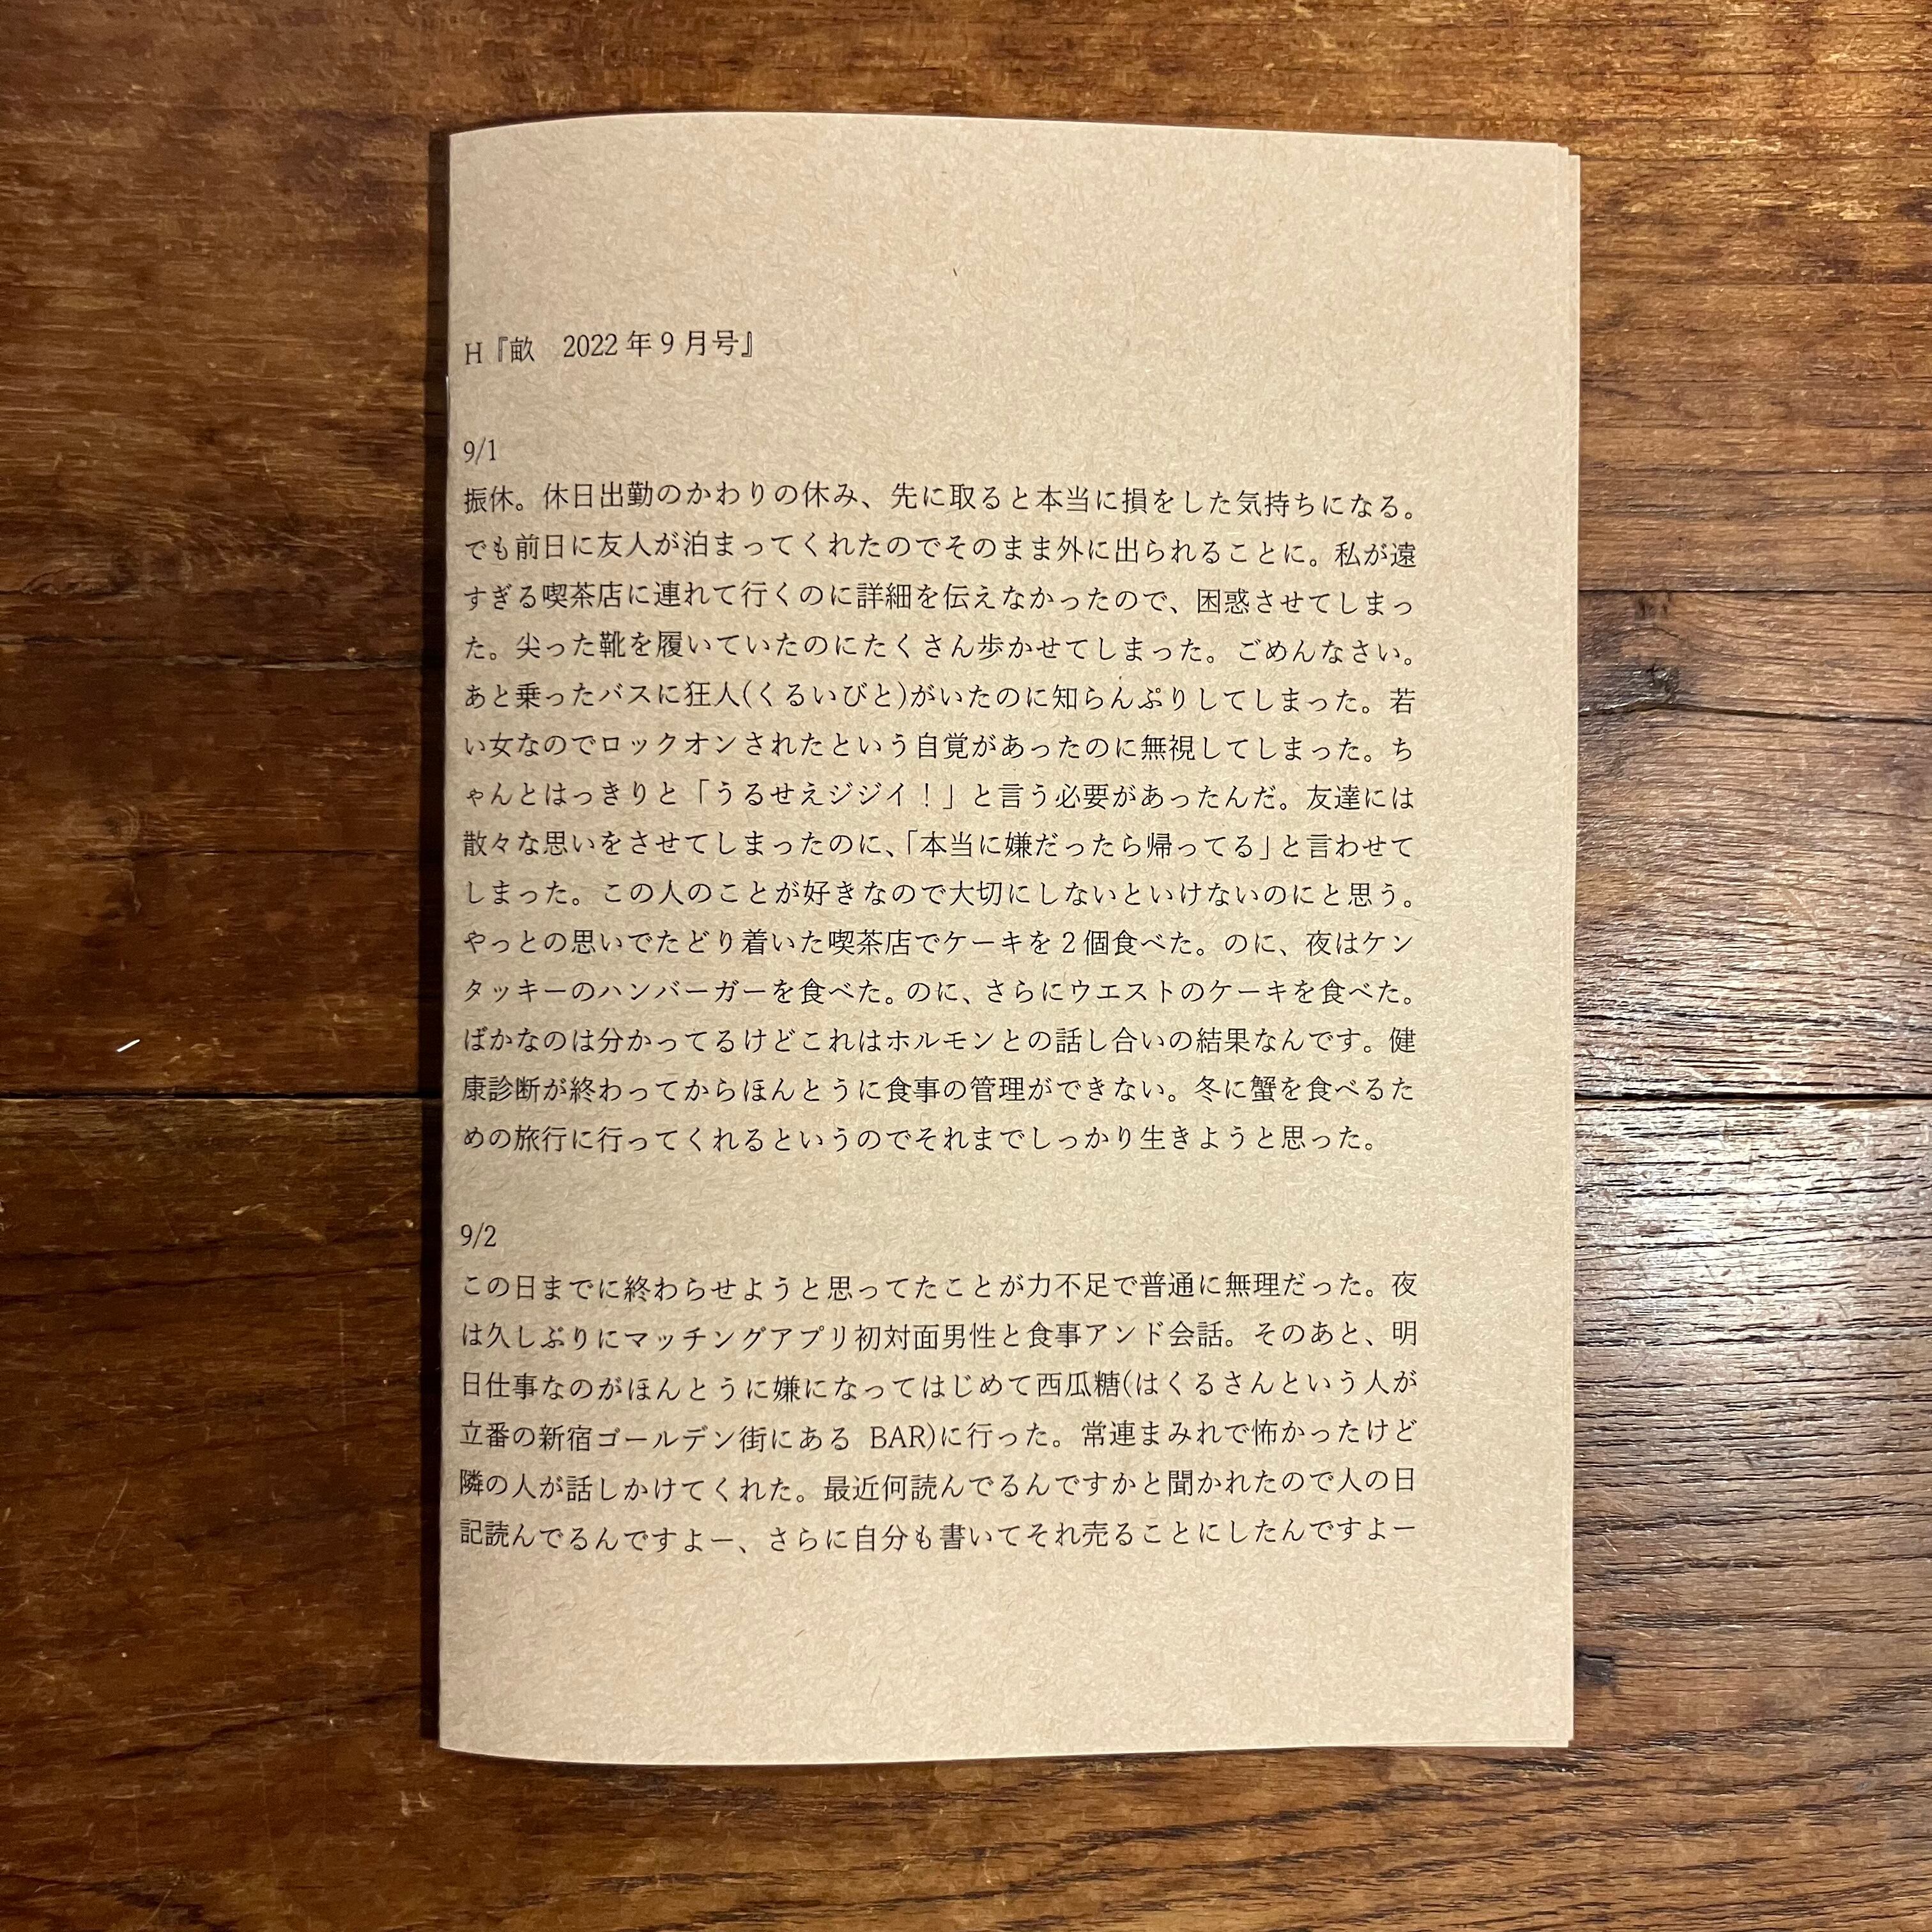 H『畝　2022年9月号』
9/1
振休。休日出勤のかわりの休み、先に取ると本当に損をした気持ちになる。
でも前日に友人が泊まってくれたのでそのまま外に出られることに。私が遠
すぎる喫茶店に連れて行くのに詳細を伝えなかったので、困惑させてしまっ
た。尖った靴を履いていたのにたくさん歩かせてしまった。ごめんなさい。
あと乗ったバスに狂人(くるいびと)がいたのに知らんぷりしてしまった。若
い女なのでロックオンされたという自覚があったのに無視してしまった。ち
ゃんとはっきりと「うるせえジジイ！」と言う必要があったんだ。友達には
散々な思いをさせてしまったのに、「本当に嫌だったら帰ってる」と言わせて
しまった。この人のことが好きなので大切にしないといけないのにと思う。
やっとの思いでたどり着いた喫茶店でケーキを2個食べた。のに、夜はケン
タッキーのハンバーガーを食べた。のに、さらにウエストのケーキを食べた。
ばかなのは分かってるけどこれはホルモンとの話し合いの結果なんです。健
康診断が終わってからほんとうに食事の管理ができない。冬に蟹を食べるた
めの旅行に行ってくれるというのでそれまでしっかり生きようと思った。
9/2
この日までに終わらせようと思ってたことが力不足で普通に無理だった。夜
は久しぶりにマッチングアプリ初対面男性と食事アンド会話。そのあと、明
日仕事なのがほんとうに嫌になってはじめて西瓜糖(はくるさんという人が
立番の新宿ゴールデン街にある BAR)に行った。常連まみれで怖かったけど
隣の人が話しかけてくれた。最近何読んでるんですかと聞かれたので人の日
記読んでるんですよー、さらに自分も書いてそれ売ることにしたんですよー